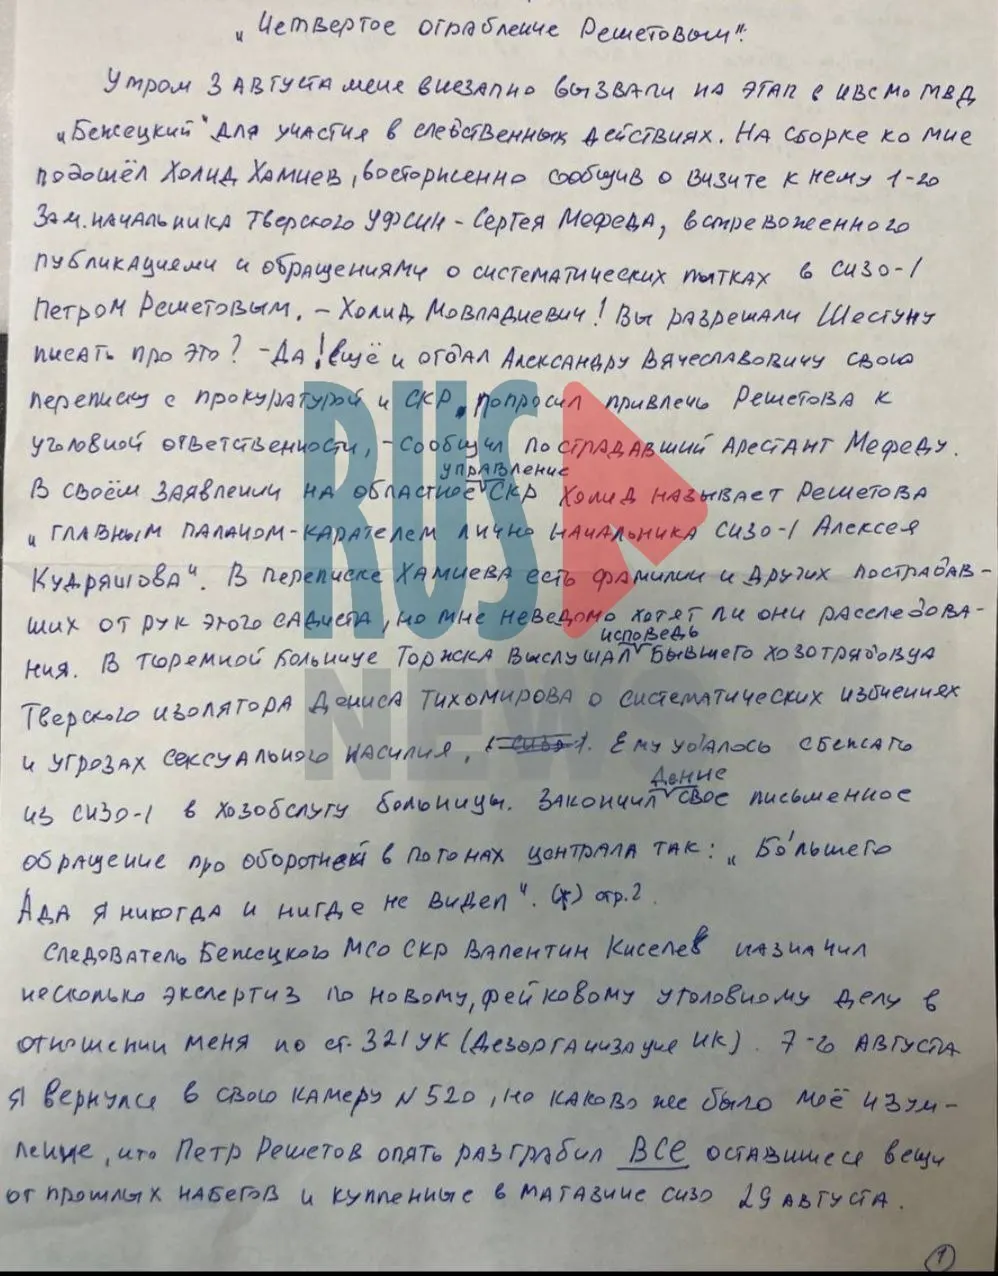 „Четвертое ограбление Решетовым".
Утром 3 августа меня внезапно вызвали на этап в ИВС МО МВД
„Бежецкий" для участия в следственных действиях. На сборке ко мне
подошёл Холид Хамиев, восторженно сообщив о визите к нему 1-го
Зам. начальника Тверского УФСИН - Сергея Мефеда, встревоженного
публикациями и обращениями о систематических пытках в СИЗО-1
Петром Решетовым. - Холид Мовладиевич! Вы разрешали Шестуну
писать про это? - Да! Ещё и отдал Александру Вячеславовичу свою
переписку с прокуратурой и СКР, попросил привлечь Решетова к
уголовной ответственности, - сообщил пострадавший арестант Мефеду.
управление
В своём заявлении на областное СКР Холид называет Решетова
„главным палачом-карателем лично начальника СИЗО-1 Алексея
Кудряшова". В переписке Хамиева есть фамилии и других пострадав-
ших от рук этого садиста, но мне неведомо хотят ли они расследова-
исповедь
ния. В тюремной больнице Торжска выслушал бывшего хозотрядовца
Тверского изолятора Дениса Тихомирова о систематических избиениях
и угрозах сексуального насилия, Ему удалось сбежать
Денис
из СИЗО-1 в хозобслугу больницы. Закончил свое письменное
обращение про оборотней в погонах централа так: „Бо́льшего
Ада я никогда и нигде не видел". (*) стр. 2.
Следователь Бежецкого МСО СКР Валентин Киселев назначил
несколько экспертиз по новому, фейковому уголовному делу в
отношении меня по ст. 321 УК (Дезорганизация ИК). 7-го августа
я вернулся в свою камеру N 520, но каково же было моё изум-
ление, что Петр Решетов опять разграбил ВСЕ оставшиеся вещи
от прошлых набегов и купленные в магазине СИЗО 29 августа.
1
RUSA
NEWS